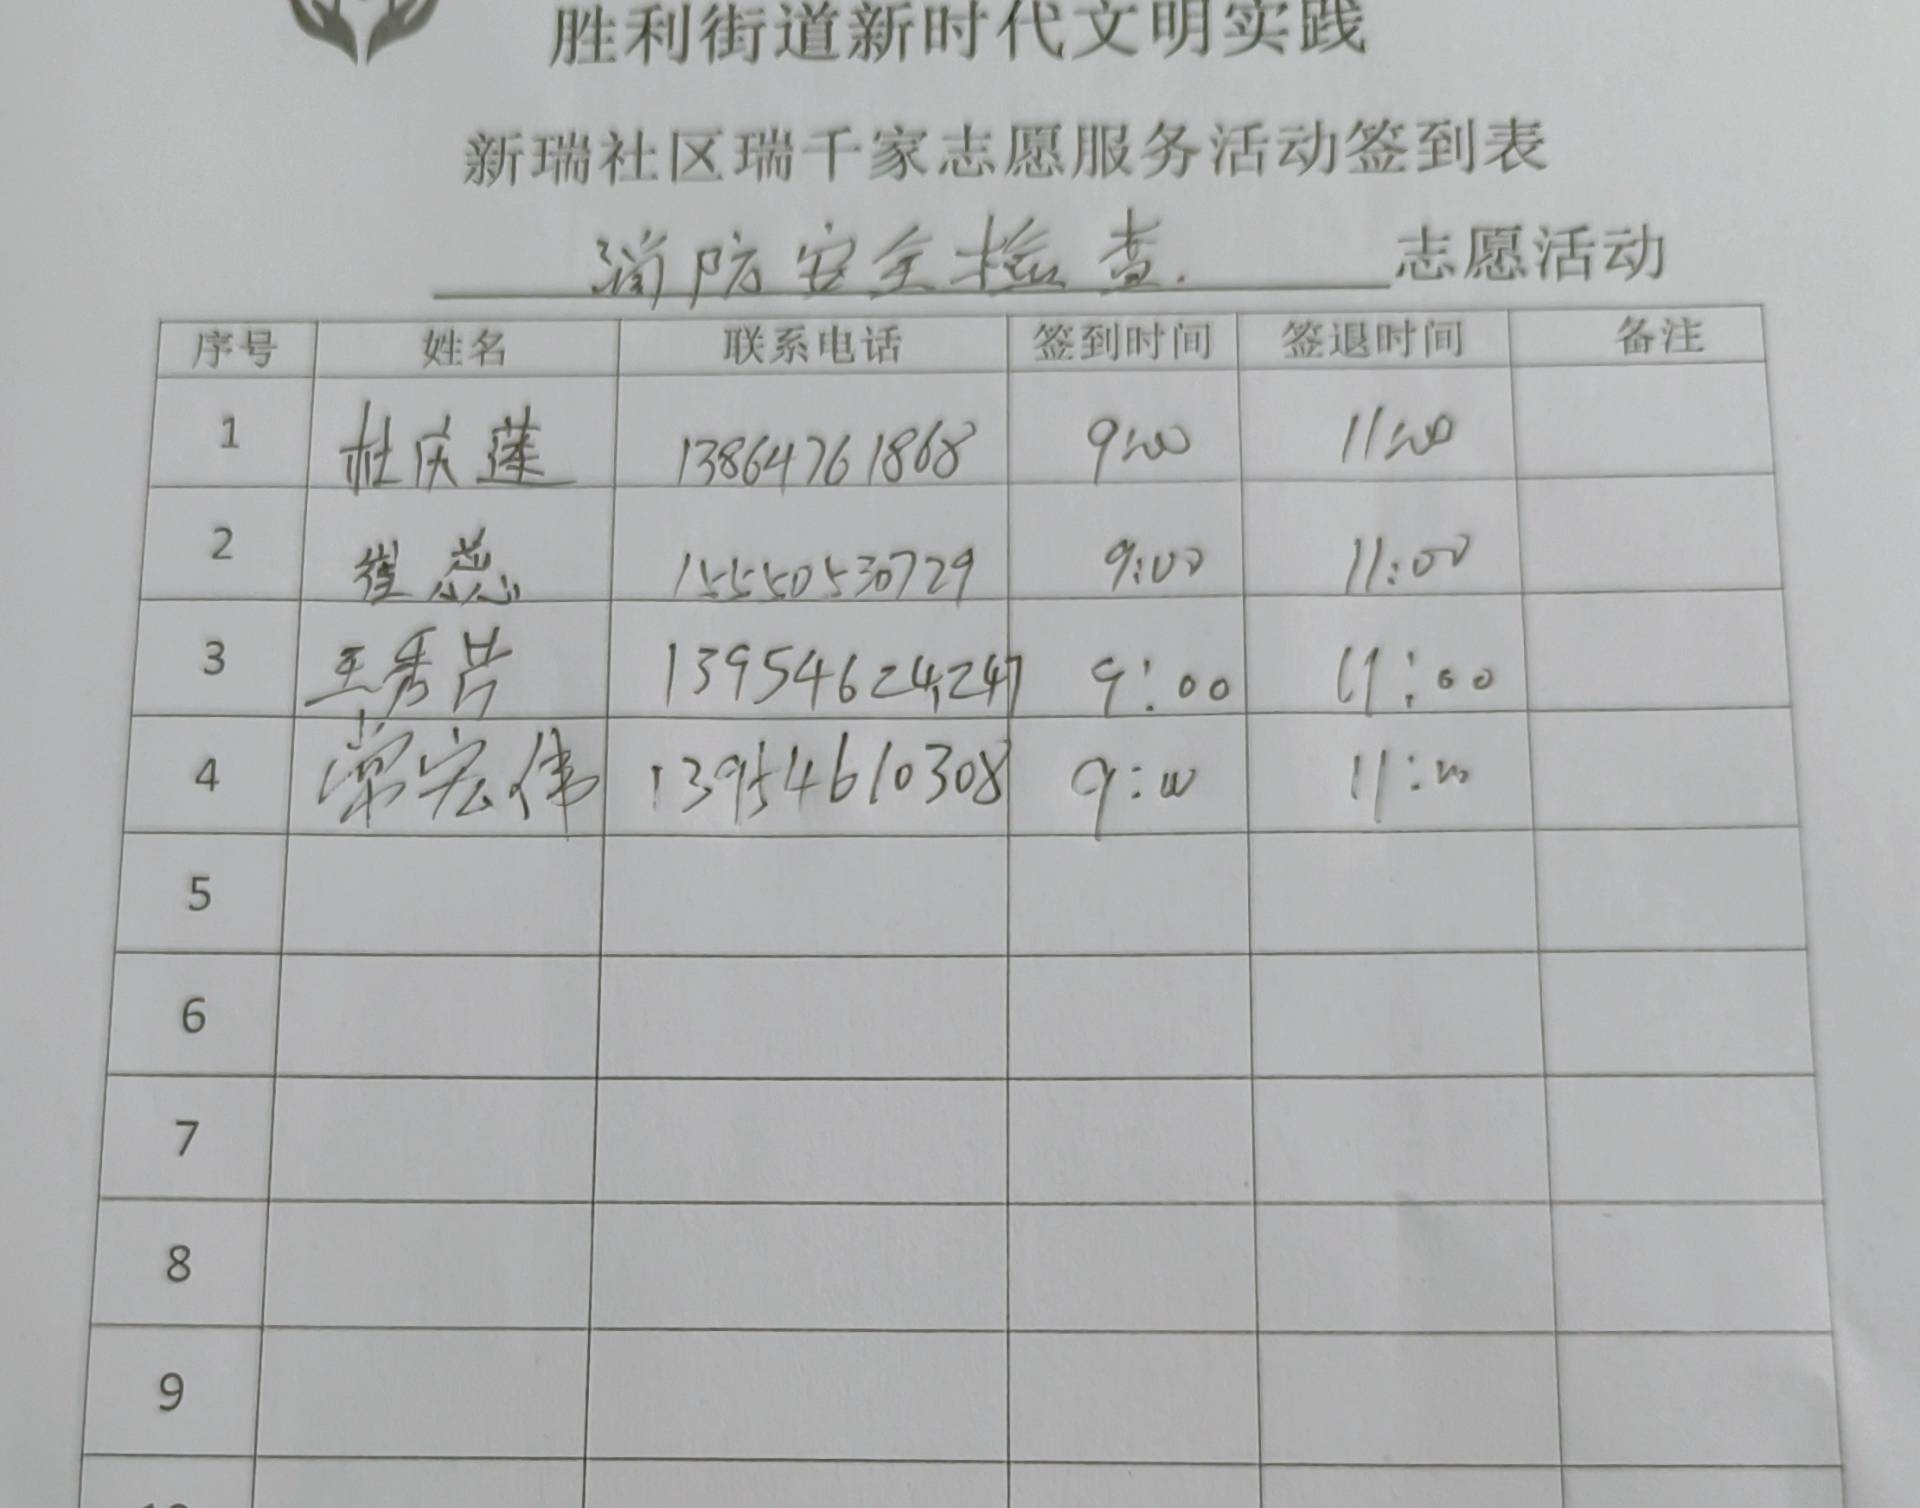 胜利街道新时代文明实践
新瑞社区瑞千家志愿服务活动签到表
消防安全检查. 志愿活动
序号 姓名 联系电话 签到时间 签退时间 备注
1 杜庆莲 13864761868 9:00 11:00
2 崔蕊 15550530729 9:00 11:00
3 王秀芹 13954624247 9:00 11:00
4 常宏伟 13954610308 9:00 11:00
5
6
7
8
9
10